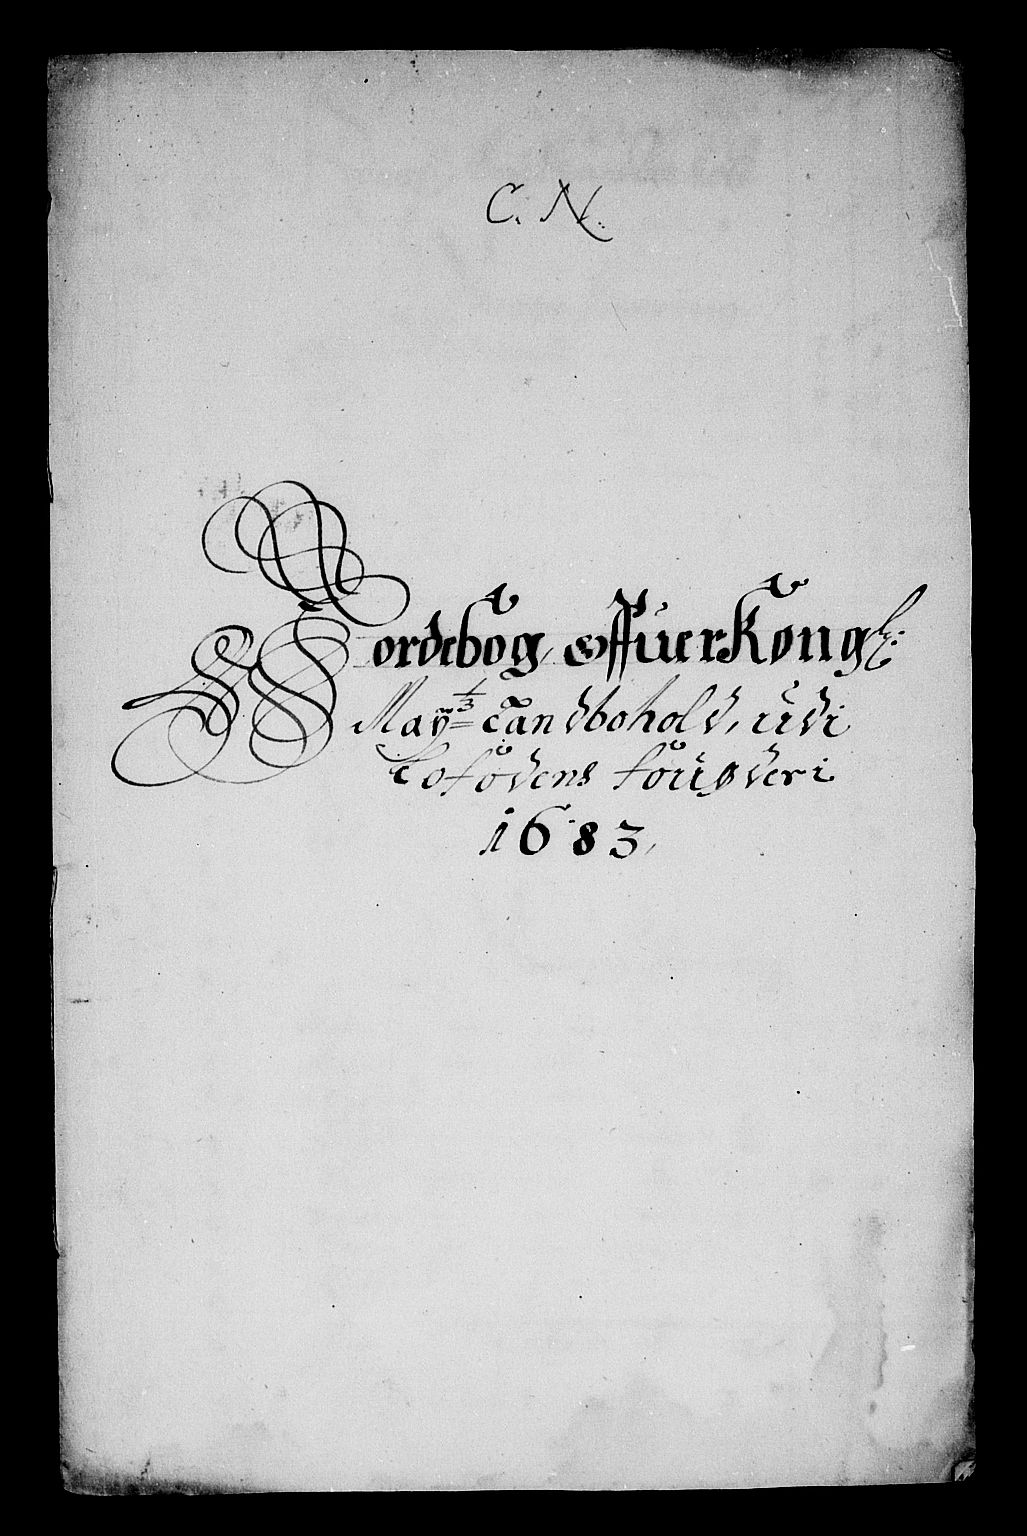 C. N.
Jordebog, offuer Kongl:
Mayᵗˢ Landbohold, udi
Lofodens fougderi
1683,